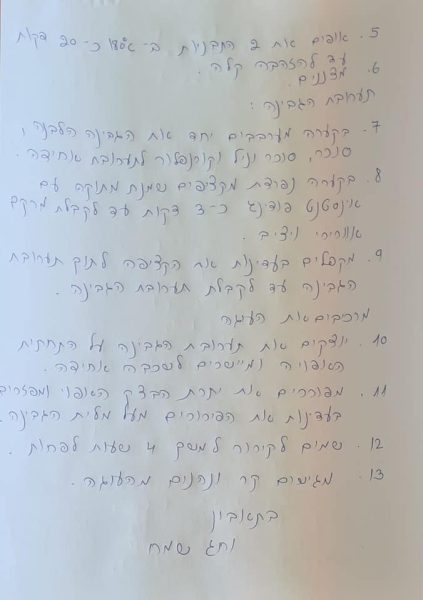 5. אופים את 2 התבניות ב-180° כ-20 דקות
עד להזהבה קלה.
6. מצננים.
תערובת הגבינה:
7. בקערה מערבבים יחד את הגבינה הלבנה,
סוכר, סוכר וניל וקורנפלור לתערובת אחידה.
8. בקערה נפרדת מקציפים שמנת מתוקה עם
אינסטנט פודינג כ-3 דקות עד לקבלת מרקם
אוורירי ויציב.
9. מקפלים בעדינות את הקציפה לתוך תערובת
הגבינה עד לקבלת תערובת הגבינה.
מרכיבים את העוגה
10. יוצקים את תערובת הגבינה על התחתית
האפויה ומיישרים לשכבה אחידה.
11. מפוררים את יתרת הבצק האפוי ומפזרים
בעדינות את הפירורים מעל מלית הגבינה.
12. שמים לקירור למשך 4 שעות לפחות.
13. מגישים קר ונהנים מהעוגה.
בתאבון
וחג שמח